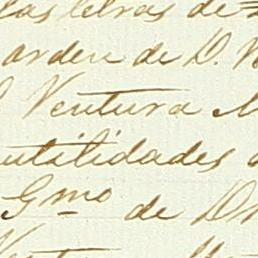 las letras de
orden de D.
Ventura
utilidades
Gmo de